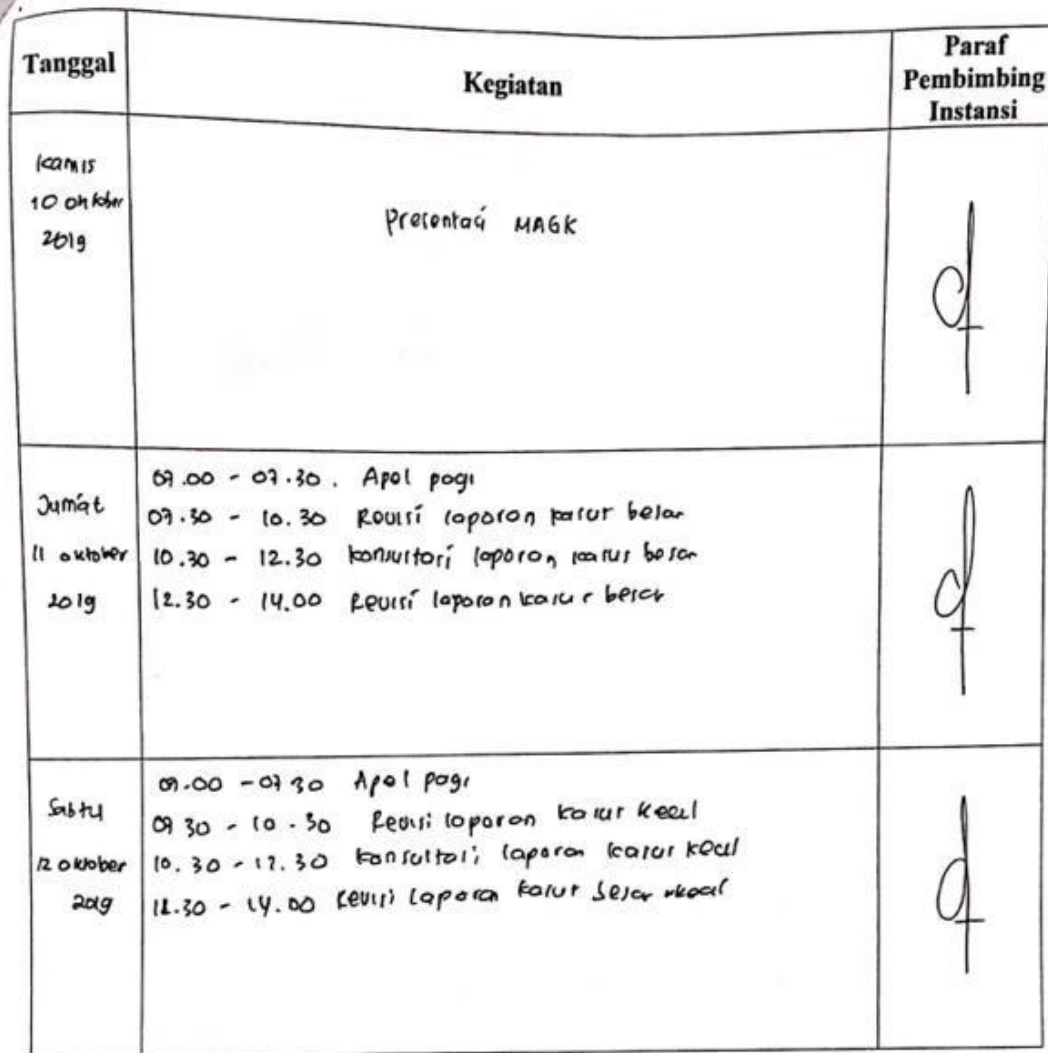 Tanggal
Kegiatan
Paraf
Pembimbing
Instansi
Kamis
10 oktober
2019
Presentasi MAGK
Jumat
11 oktober
2019
07.00 - 07.30. Apel pagi
07.30 - 10.30 Revisi laporan kasus besar
10.30 - 12.30 konsultasi laporan kasus besar
12.30 - 14.00 Revisi laporan kasus besar
Sabtu
12 oktober
2019
07.00 - 07 30 Apel pagi
07 30 - 10.30 Revisi laporan kasus kecil
10.30 - 12.30 konsultasi laporan kasus kecil
12.30 - 14.00 Revisi laporan kasus besar